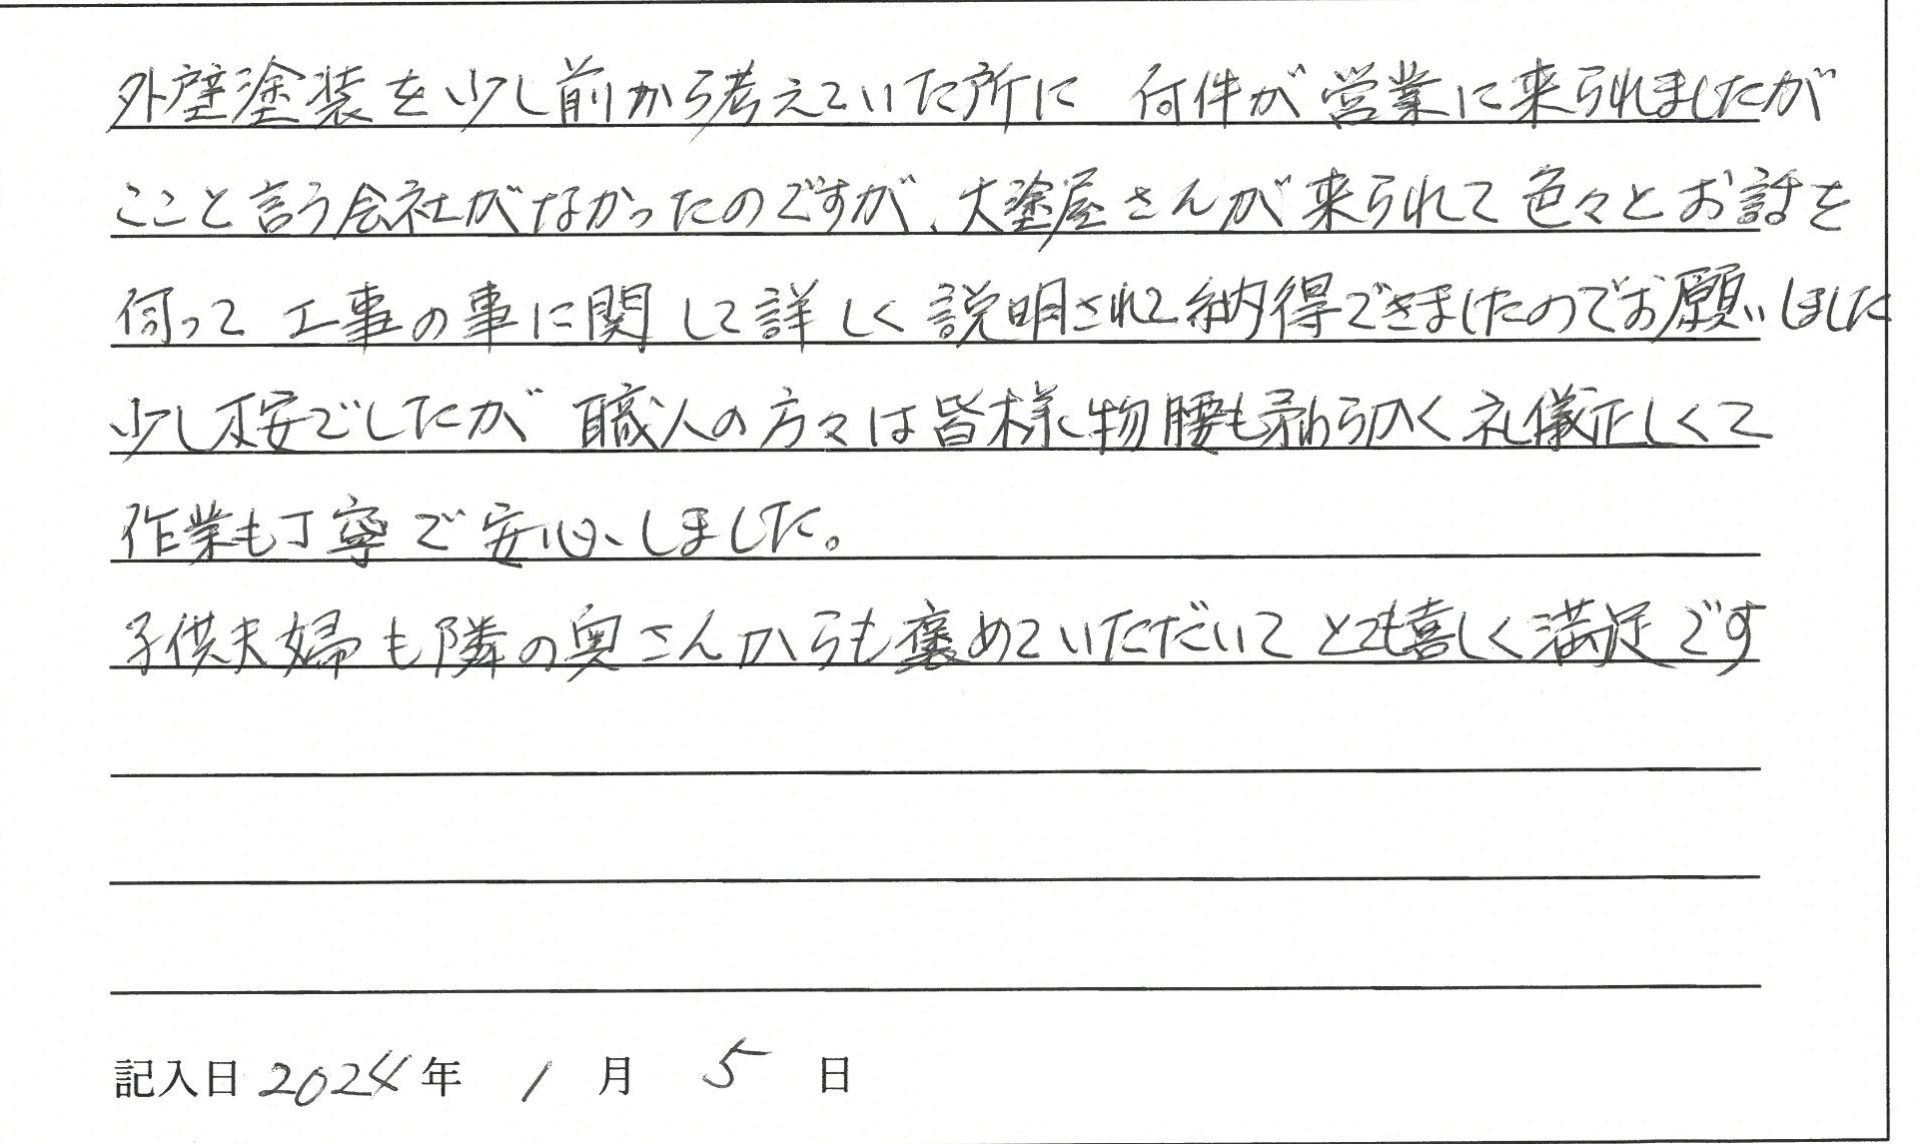 外壁塗装を少し前から考えていた所に 何件が営業に来られましたが
ここと言う会社がなかったのですが、大塗屋さんが来られて色々とお話を
伺って 工事の事に関して詳しく説明されて納得できましたのでお願いしました
少し不安でしたが 職人の方々は皆様、物腰も柔らかく礼儀正しくて
作業も丁寧で安心しました。
子供夫婦も隣の奥さんからも褒めていただいてとても喜しく満足です
記入日 2024 年 1 月 5 日